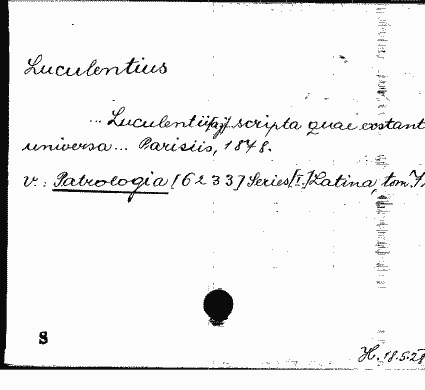 Luculentius
... Luculentii scripta quae exstant
universa... Parisiis, 1848.
v.: Patrologia [6233] Series [I.] Latina, tom.
S
H. 18.5.28